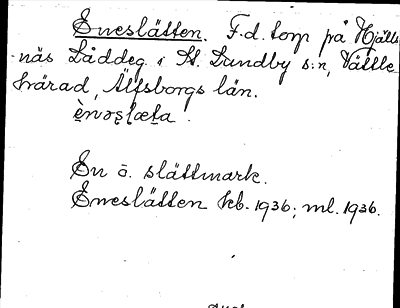 Eneslätten. F.d. torp på Hjälls
näs Låddeg. i St. Lundby s:n, Vättle
härad, Älfsborgs län.
ènəʂlæta.
En ö. slättmark.
Eneslätten kb. 1936; ml. 1936.